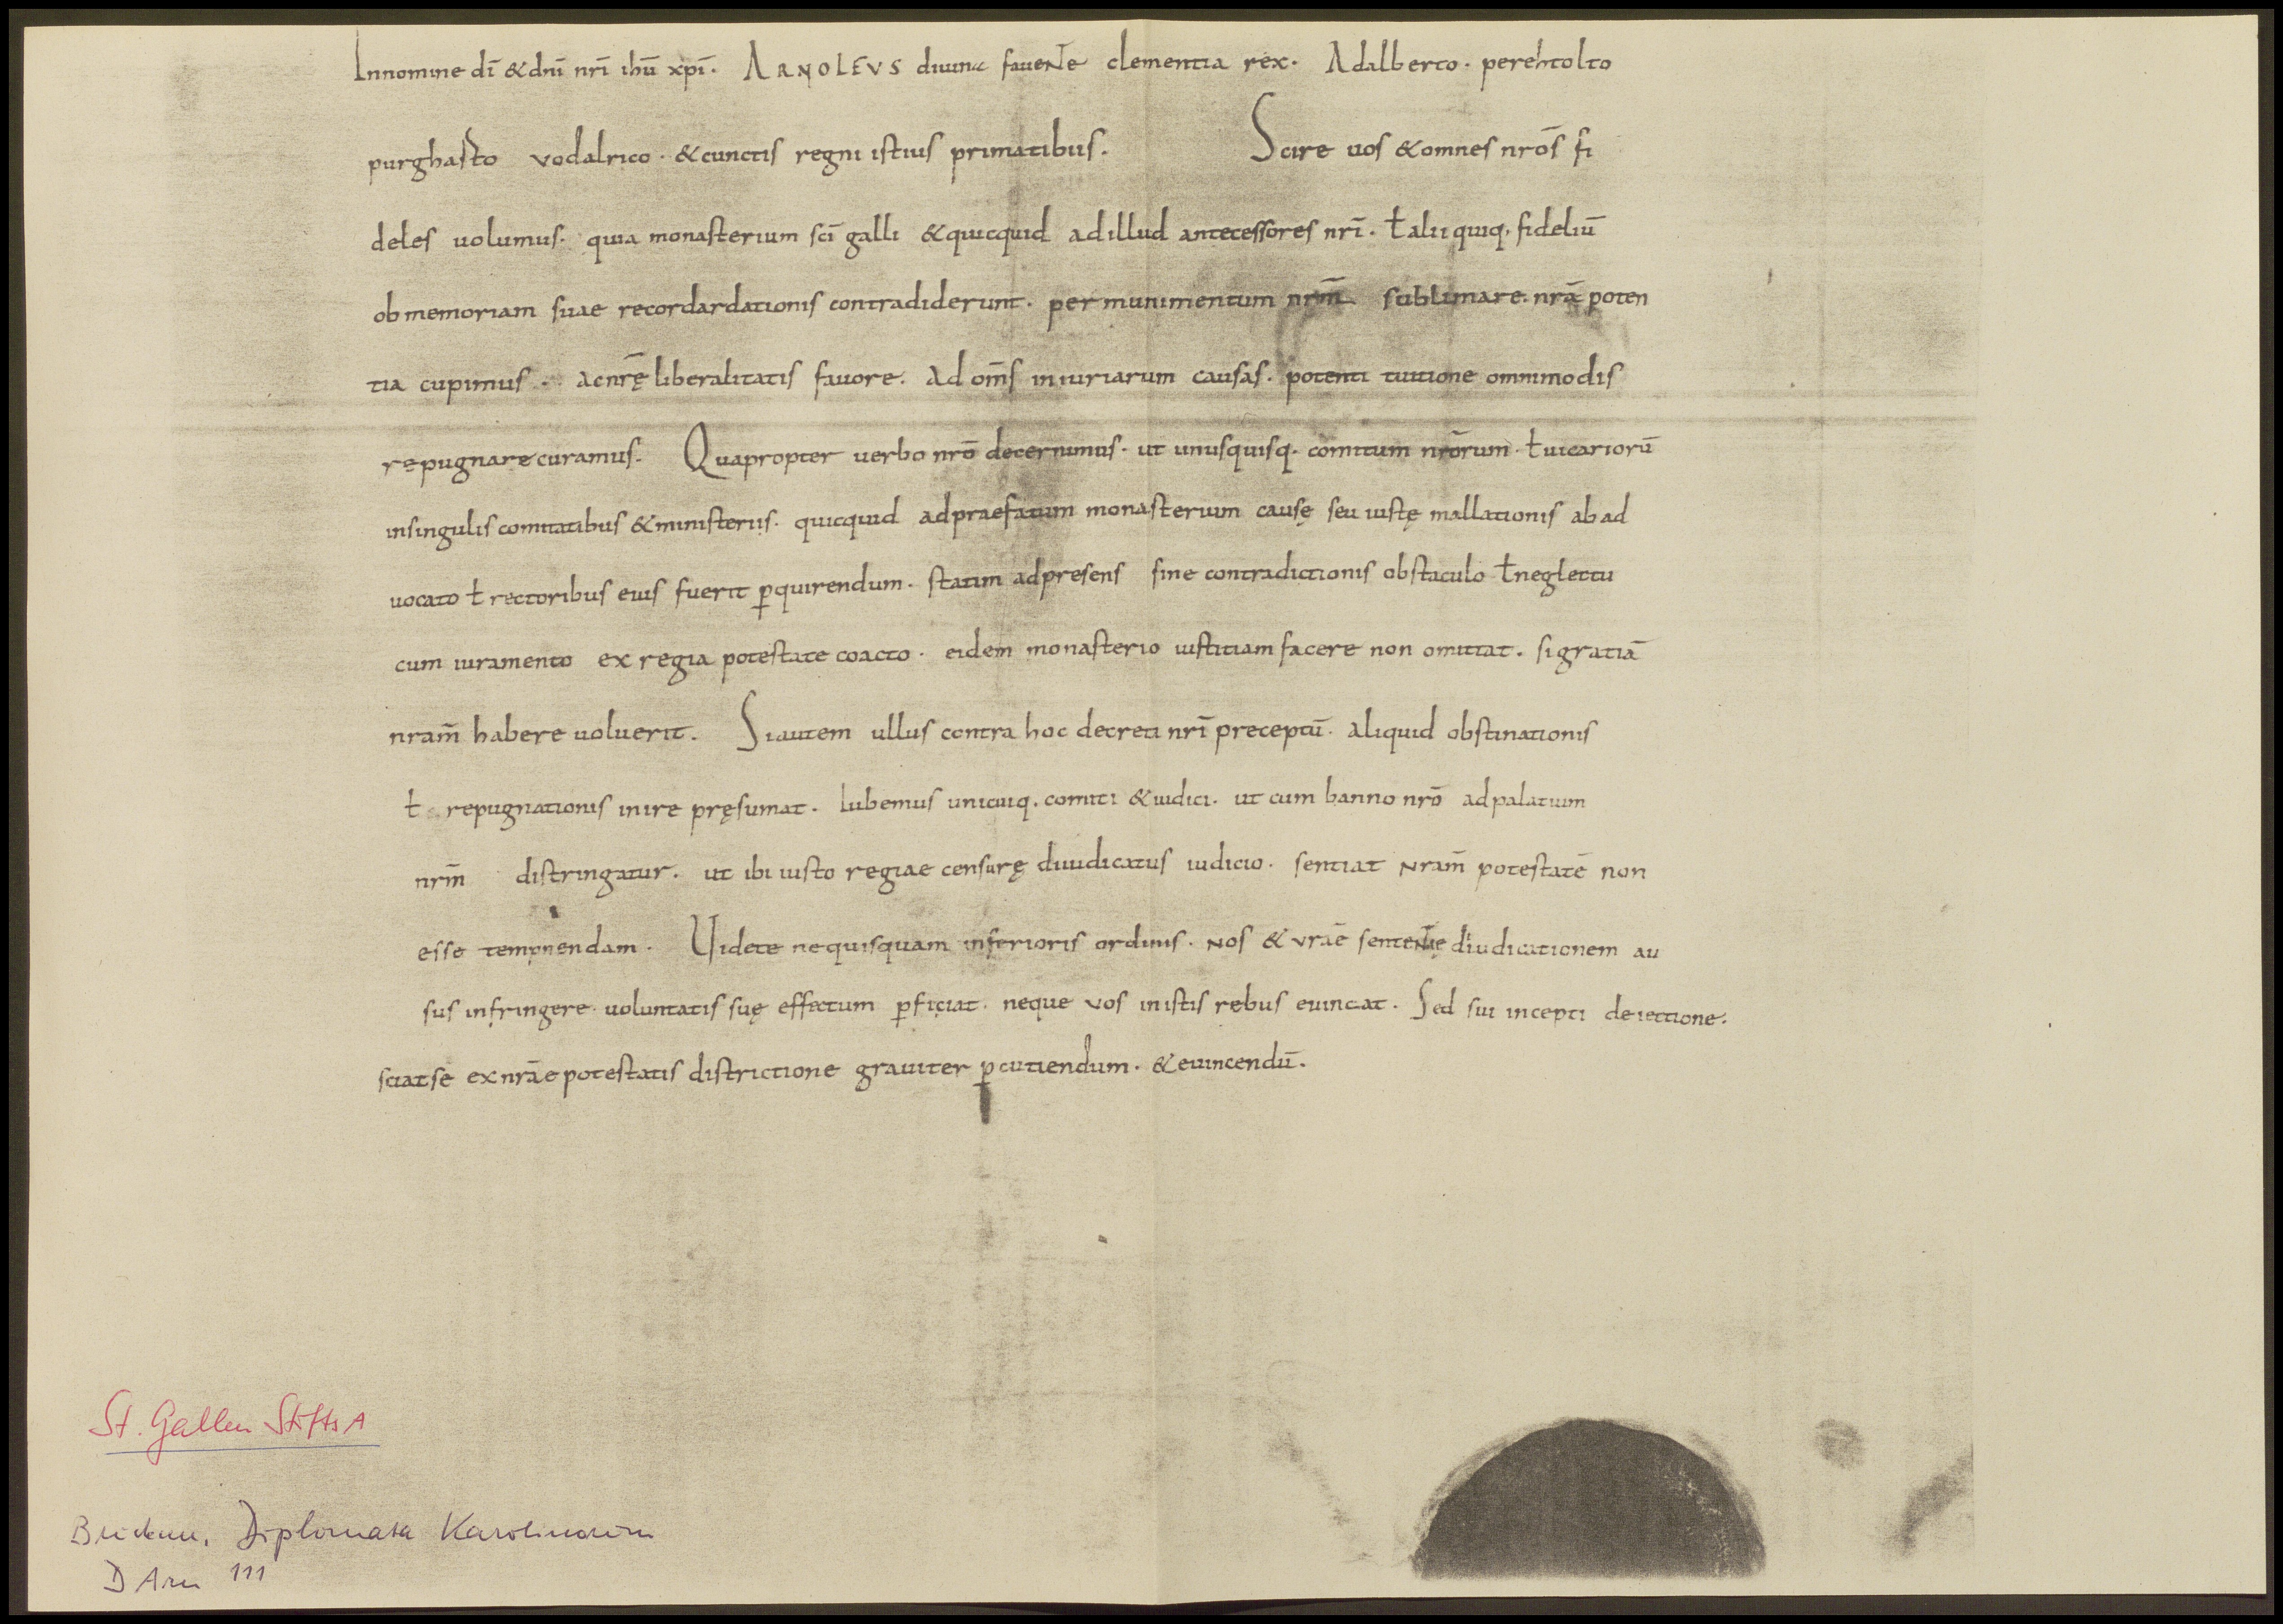 Innomine dī &dnī nrī ihū xpī. ARNOLFVS diuina faueNte clementia rex. Adalberto. perehtolto
purghasto vodalrico. &cunctis regni istius primatibus. Scire uos &omnes nrōs fi
deles uolumus. quia monasterium scī galli &quicquid adillud antecessores nrī. ł alii quiq. fideliū
ob memoriam suae recordardationis contradiderunt. per munimentum nrm̄ sublimare. nrā poten
tia cupimus. acnrę̄ liberalitatis fauore. Ad om̄s iniuriarum causas. potenti tuitione omnimodis
repugnare curamus. Quapropter uerbo nrō decernimus. ut unusquisq. comitum nrōrum. ł uicariorū
insingulis comitatibus &ministeriis. quicquid adpraefatum monasterium causę seu iustę mallationis ab ad
uocato ł rectoribus eius fuerit ꝑquirendum. statim adpresens sine contradictionis obstaculo ł neglectu
cum iuramento ex regia potestate coacto. eidem monasterio iustitiam facere non omittat. si gratiā
nram̄ habere uoluerit. Siautem ullus contra hoc decreti nrī preceptū. aliquid obstinationis
ł repugnationis inire pręsumat. Iubemus unicuiq. comiti &iudici. ut cum banno nrō adpalatium
nrm̄ distringatur. ut ibi iusto regiae censurę diiudicatus iudicio. sentiat Nram̄ potestatē non
esse tempnendam. Uidete nequisquam inferioris ordinis. Nos & vrāe senteNtię diiudicationem au
sus infringere. uoluntatis suę effectum ꝑficiat. neque vos inistis rebus euincat. Sed sui incepti deiectione.
sciatse exnrāe potestatis districtione grauiter ꝑcutiendum. &euincendū.
St. Gallen StiftsA
Diplomata Karolinorum
D Arn 111